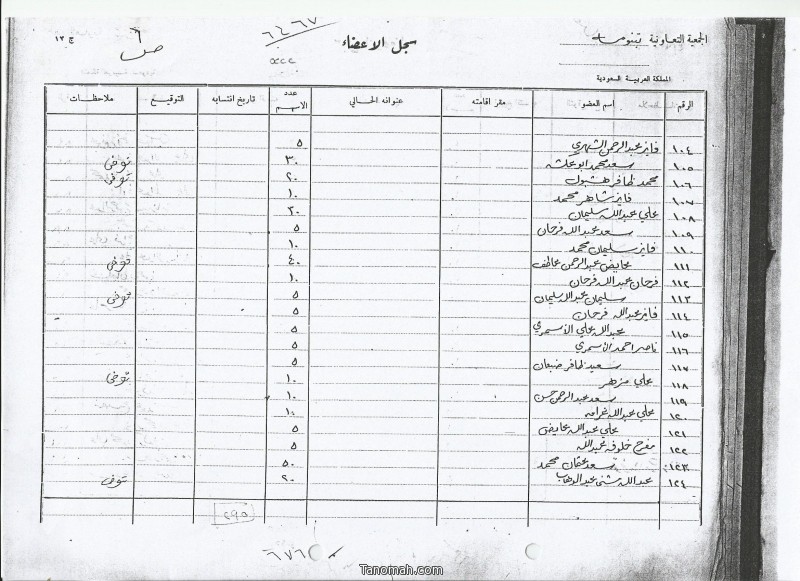 الجمعية التعاونية بتنومة
سجل الاعضاء
ص ٦
ج ١٣
المملكة العربية السعودية
الرقم اسم العضو مقر اقامته عنوانه الحالي عدد الاسهم تاريخ انتسابه التوقيع ملاحظات
١٠٤ فايز عبدالرحمن الشهري ٥
١٠٥ سعد محمد ابوعكشه ٣٠ توفى
١٠٦ محمد ظافر هشبول ٢٠ توفى
١٠٧ فايز شاهر محمد ١٠
١٠٨ علي عبدالله سليمان ٣٠
١٠٩ سعد عبدالله فرحان ٥
١١٠ فايز سليمان محمد ١٠
١١١ عايض عبدالرحمن عاطف ٤٠ توفى
١١٢ فرحان عبدالله فرحان ١٠
١١٣ سليمان عبدالله سليمان ٥ توفى
١١٤ فايز عبدالله فرحان ٥
١١٥ عبدالله علي الأسمري ٥
١١٦ ناصر احمد الأسمري ٥
١١٧ سعيد ظافر ضبعان ٥
١١٨ علي مزهر ١٠ توفى
١١٩ سعد عبدالرحمن حسن ١٠
١٢٠ علي عبدالله غرامه ١٠
١٢١ علي عبدالله عايض ٥
١٢٢ مفرح خلوفه عبدالله ٥
١٢٣ سعد محمد ٥٠
١٢٤ عبدالله عبدالوهاب ٢٠ توفى
٢٩٥
٦٧٦
Tanomah.com